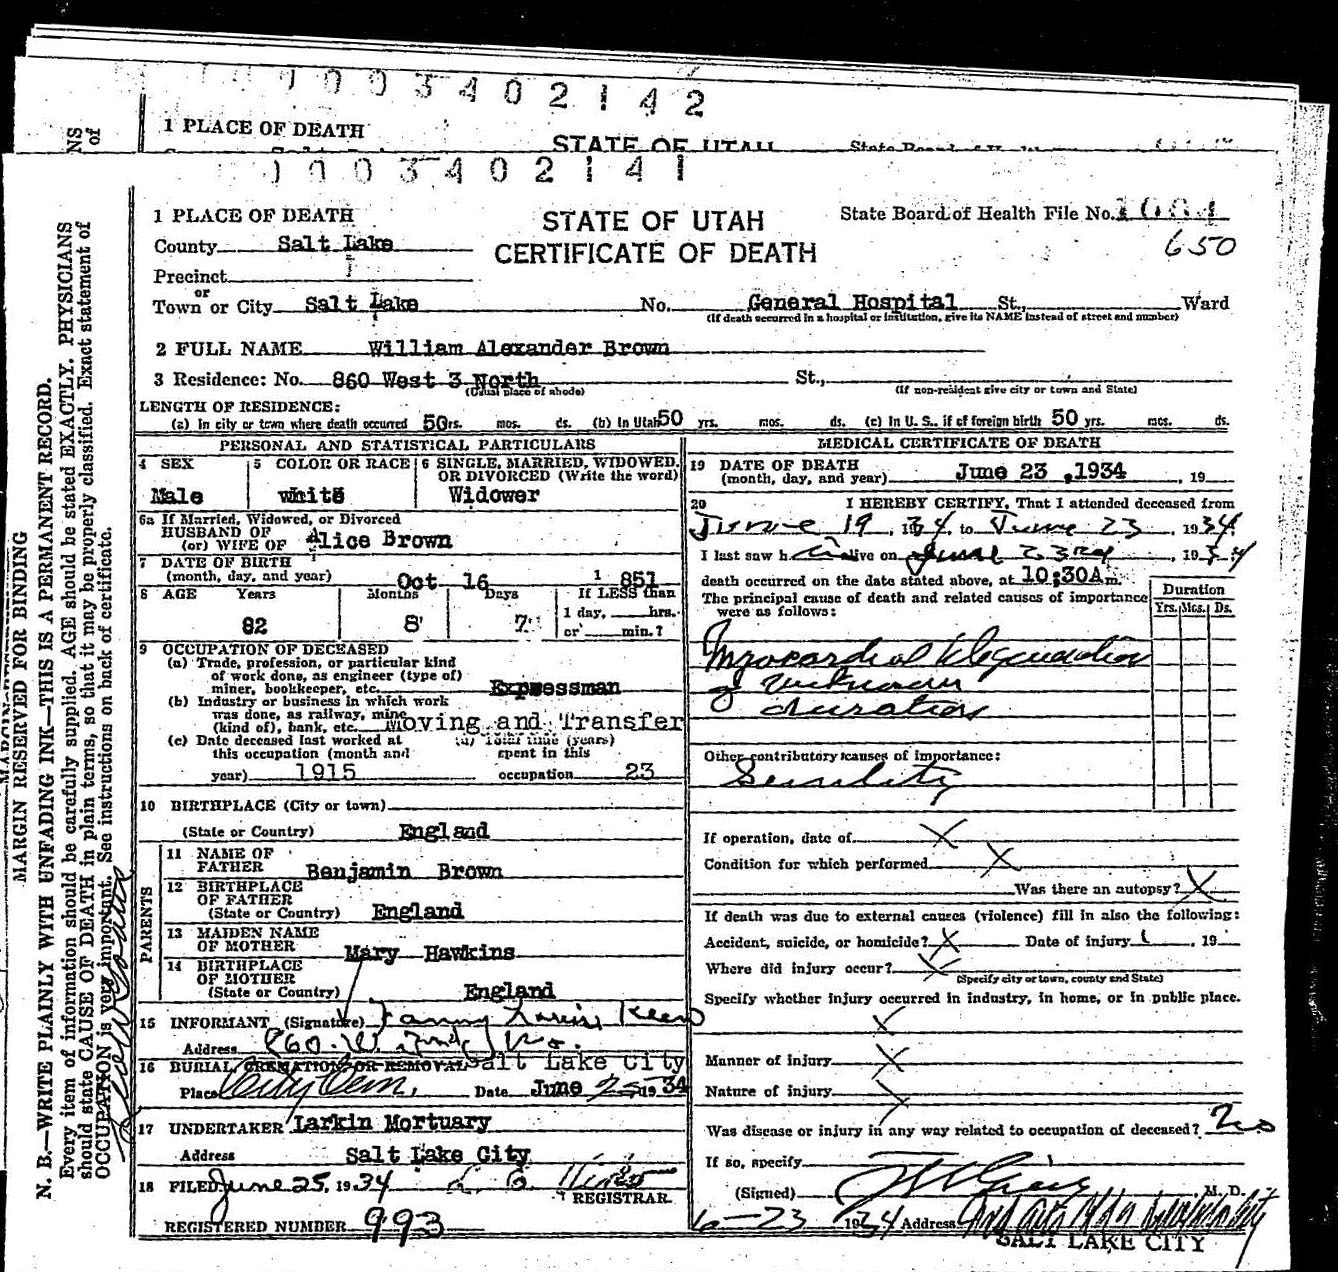 3 4 0 2 1 4 2
1 PLACE OF DEATH
STATE OF UTAH
1 0 0 3 4 0 2 1 4 1
1 PLACE OF DEATH
STATE OF UTAH
CERTIFICATE OF DEATH
State Board of Health File No.
650
County Salt Lake
Precinct
or
Town or City Salt Lake No. General Hospital St., Ward
(If death occurred in a hospital or institution, give its NAME instead of street and number)
2 FULL NAME William Alexander Brown
3 Residence: No. 860 West 3 North St.,
(Usual place of abode) (If non-resident give city or town and State)
LENGTH OF RESIDENCE:
(a) In city or town where death occurred 50 yrs. mos. ds. (b) In Utah 50 yrs. mos. ds. (c) In U. S., if of foreign birth 50 yrs. mos. ds.
PERSONAL AND STATISTICAL PARTICULARS
4 SEX
Male
5 COLOR OR RACE
white
6 SINGLE, MARRIED, WIDOWED,
OR DIVORCED (Write the word)
Widower
6a If Married, Widowed, or Divorced
HUSBAND OF
(or) WIFE OF Alice Brown
7 DATE OF BIRTH
(month, day, and year) Oct 16 1 851
8 AGE Years Months Days If LESS than
1 day, hrs.
or min.?
82 8 7
9 OCCUPATION OF DECEASED
(a) Trade, profession, or particular kind
of work done, as engineer (type of)
miner, bookkeeper, etc. Expressman
(b) Industry or business in which work
was done, as railway, mine
(kind of), bank, etc. Moving and Transfer
(c) Date deceased last worked at
this occupation (month and
year) 1915
(d) Total time (years)
spent in this
occupation 23
10 BIRTHPLACE (City or town)
(State or Country) England
PARENTS
11 NAME OF
FATHER Benjamin Brown
12 BIRTHPLACE
OF FATHER
(State or Country) England
13 MAIDEN NAME
OF MOTHER Mary Hawkins
14 BIRTHPLACE
OF MOTHER
(State or Country) England
15 INFORMANT (Signature) Fanny
Address 860 W.
16 BURIAL, CREMATION OR REMOVAL Salt Lake City
Place City Cem. Date June 25, 19 34
17 UNDERTAKER Larkin Mortuary
Address Salt Lake City
18 FILED June 25, 1934
REGISTRAR
REGISTERED NUMBER 993
MEDICAL CERTIFICATE OF DEATH
19 DATE OF DEATH
(month, day, and year) June 23, 1934, 19
20 I HEREBY CERTIFY, That I attended deceased from
June 19, 1934, to June 23, 1934
I last saw him alive on June 23rd, 1934
death occurred on the date stated above, at 10:30A m.
The principal cause of death and related causes of importance
were as follows:
Duration
Yrs. Mos. Ds.
Myocardial Degeneration
of unknown
duration
Other contributory causes of importance:
Senility
If operation, date of X
Condition for which performed X
Was there an autopsy? X
If death was due to external causes (violence) fill in also the following:
Accident, suicide, or homicide? X Date of injury , 19
Where did injury occur? X
(Specify city or town, county and State)
Specify whether injury occurred in industry, in home, or in public place.
X
Manner of injury X
Nature of injury
Was disease or injury in any way related to occupation of deceased? No
If so, specify
(Signed) M. D.
6-23 1934 Address
SALT LAKE CITY
MARGIN RESERVED FOR BINDING
N. B.—WRITE PLAINLY WITH UNFADING INK—THIS IS A PERMANENT RECORD.
Every item of information should be carefully supplied. AGE should be stated EXACTLY. PHYSICIANS
should state CAUSE OF DEATH in plain terms, so that it may be properly classified. Exact statement of
OCCUPATION is very important. See instructions on back of certificate.